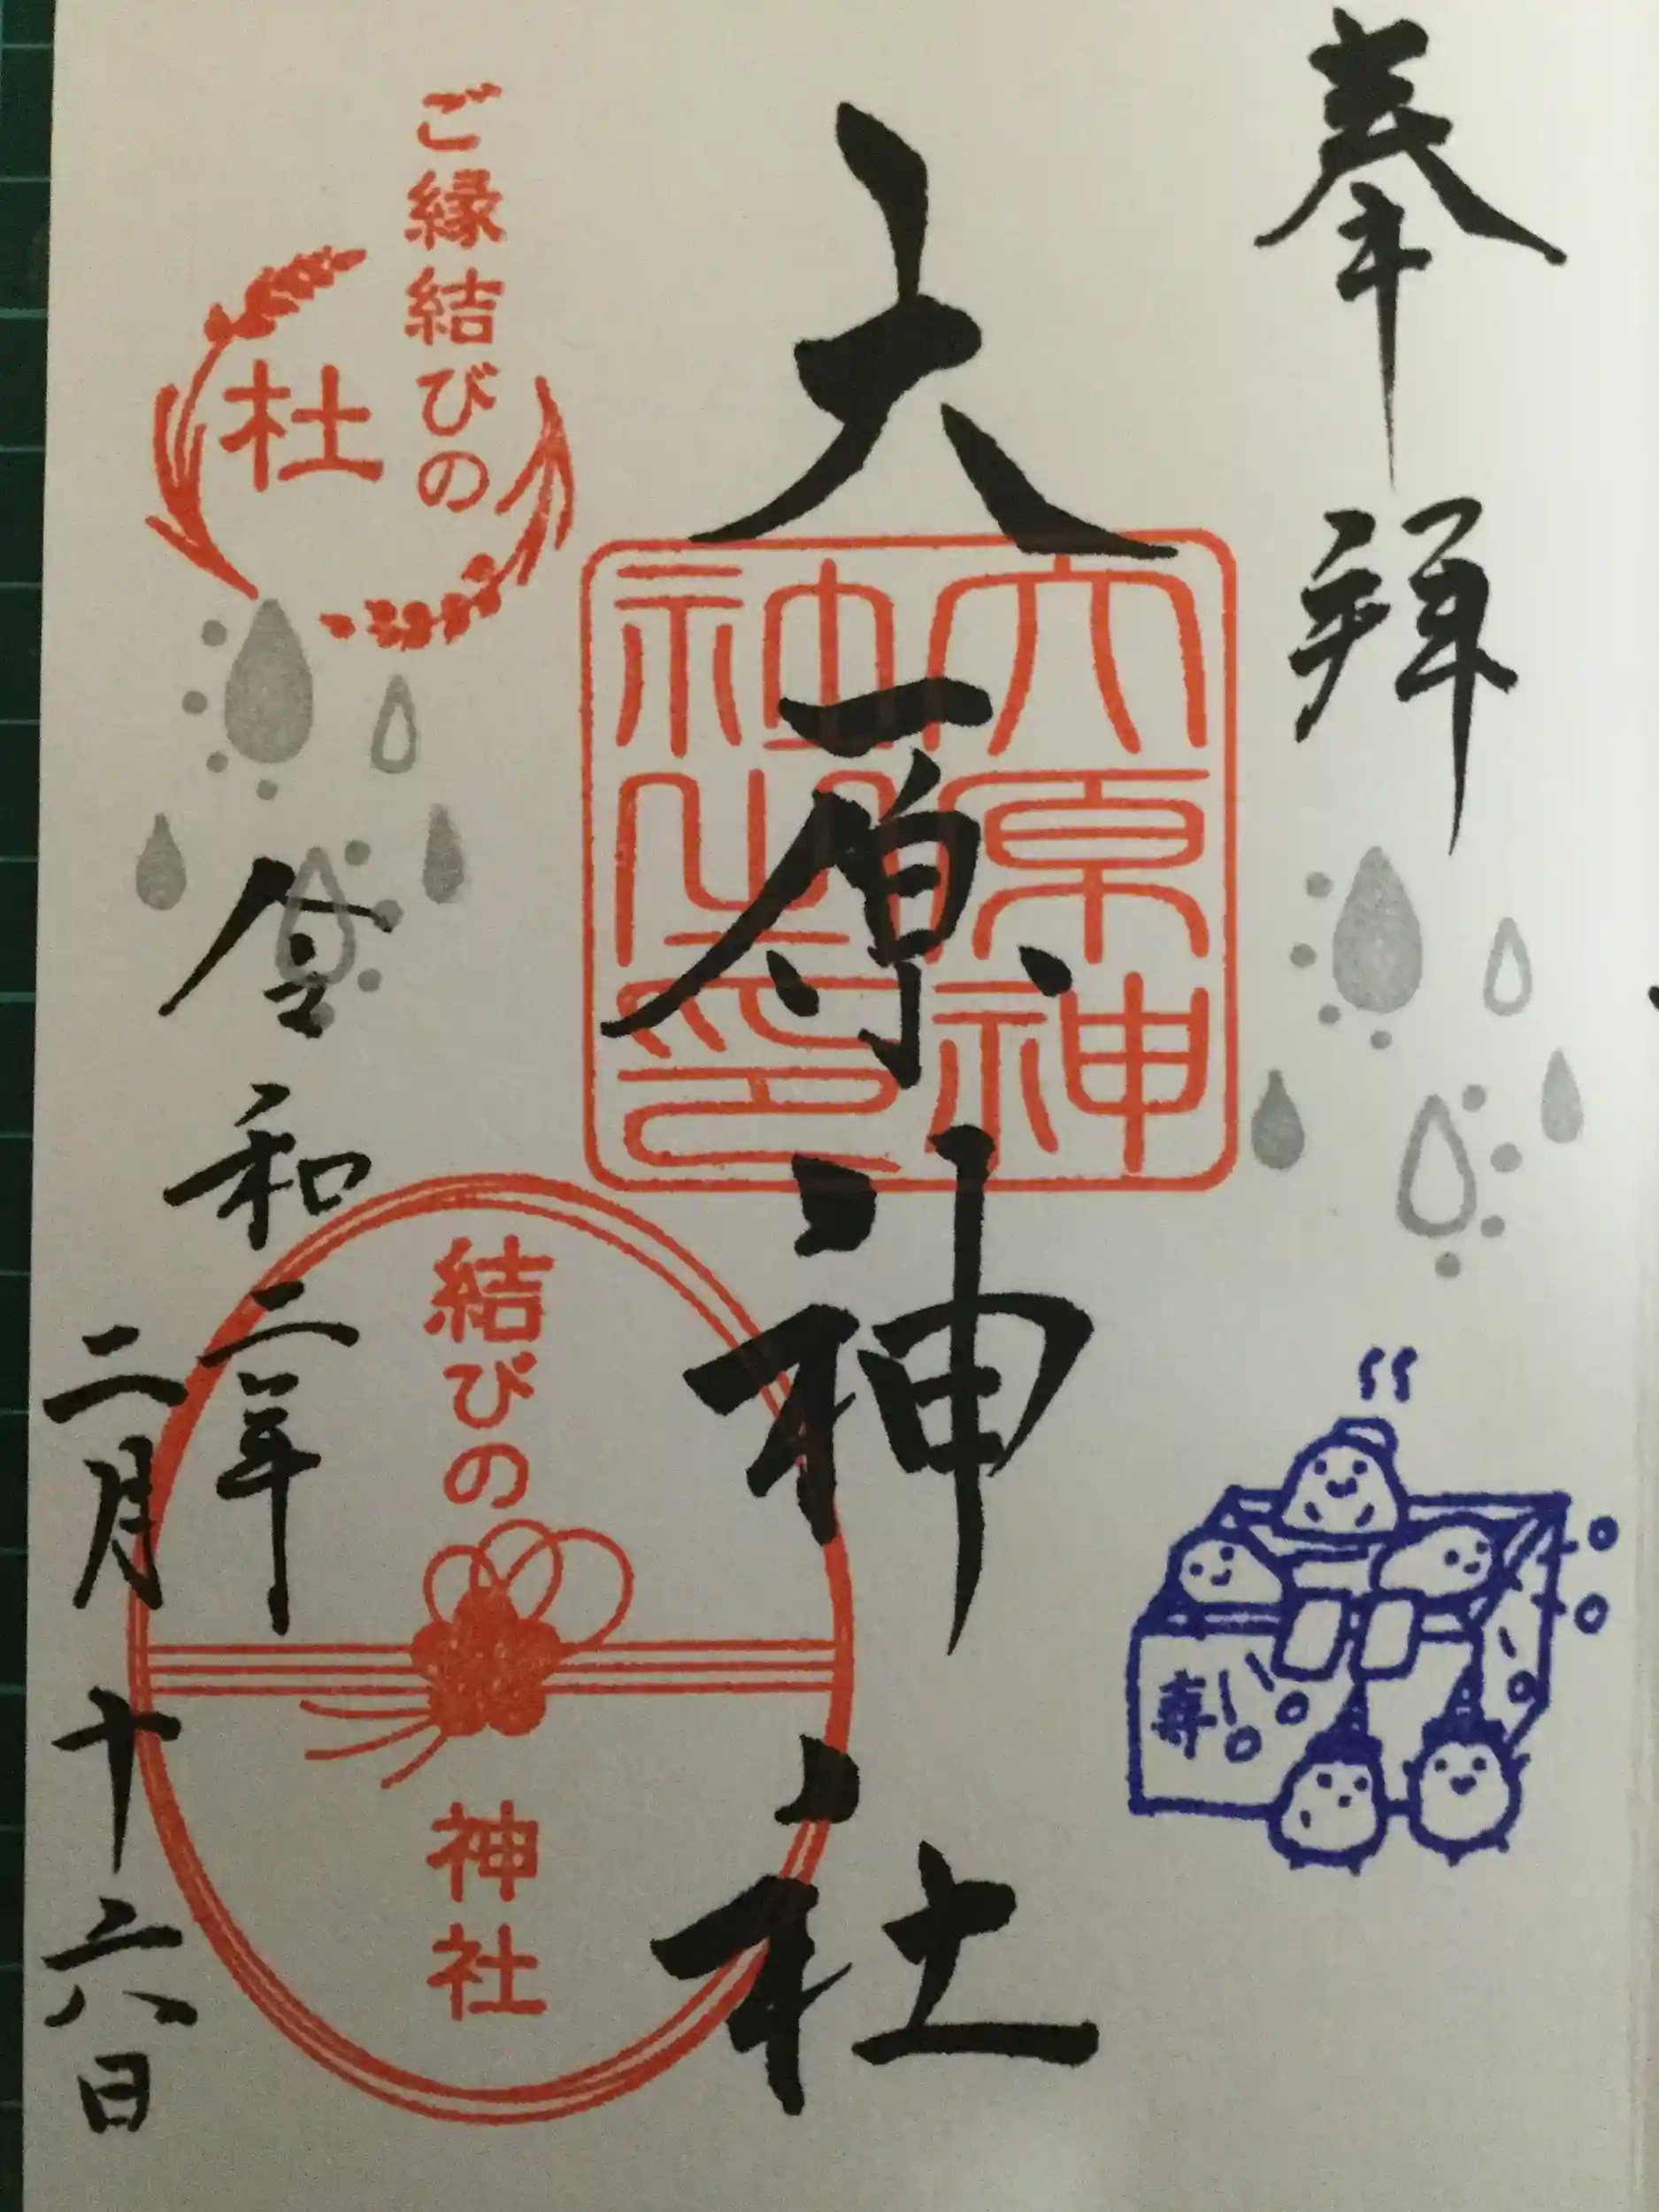 奉拝
大原神社
大原神社之印
ご縁結びの
杜
令和二年
二月十六日
結びの
神社
寿